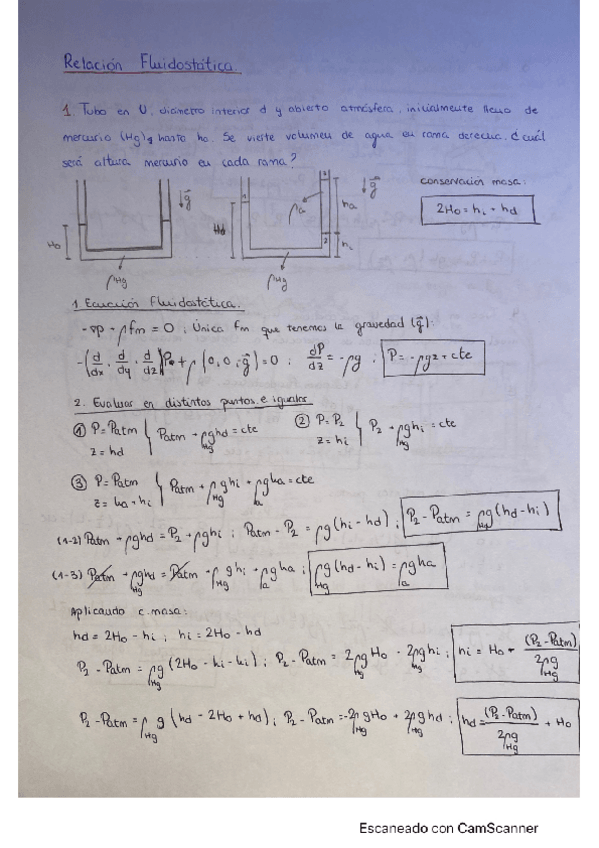 Relación Fluidostática.
1. Tubo en U, diámetro interior d y abierto atmósfera, inicialmente lleno de
mercurio (Hg) hasta ho. Se vierte volumen de agua en rama derecha. ¿cuál
será altura mercurio en cada rama?
conservación masa:
2Ho = hi + hd
g
g
Ho
Hd
ρa
ha
hi
ρHg
ρHg
1. Ecuación Fluidostática.
-∇p + ρfm = 0 ; Única fm que tenemos la gravedad (g):
-(d/dx, d/dy, d/dz)P + ρ(0,0,g) = 0 ; dP/dz = -ρg ; P = -ρgz + cte
2. Evaluar en distintos puntos e igualar
① P = Patm z = hd } Patm + ρHg g hd = cte
② P = P2 z = hi } P2 + ρHg g hi = cte
③ P = Patm z = ha + hi } Patm + ρHg g hi + ρa g ha = cte
(1-2) Patm + ρghd = P2 + ρghi ; Patm - P2 = ρg(hi - hd) ; P2 - Patm = ρHg g(hd - hi)
(1-3) Patm + ρHg ghd = Patm + ρHg ghi + ρa gha ; ρHg g(hd - hi) = ρa gha
Aplicando c. masa:
hd = 2Ho - hi ; hi = 2Ho - hd
P2 - Patm = ρHg g(2Ho - hi - hi) ; P2 - Patm = 2ρHg gHo - 2ρHg ghi ; hi = Ho - (P2 - Patm)/2ρHg g
P2 - Patm = ρHg g(hd - 2Ho + hd) ; P2 - Patm = -2ρHg gHo + 2ρHg ghd ; hd = (P2 - Patm)/2ρHg g + Ho
Escaneado con CamScanner